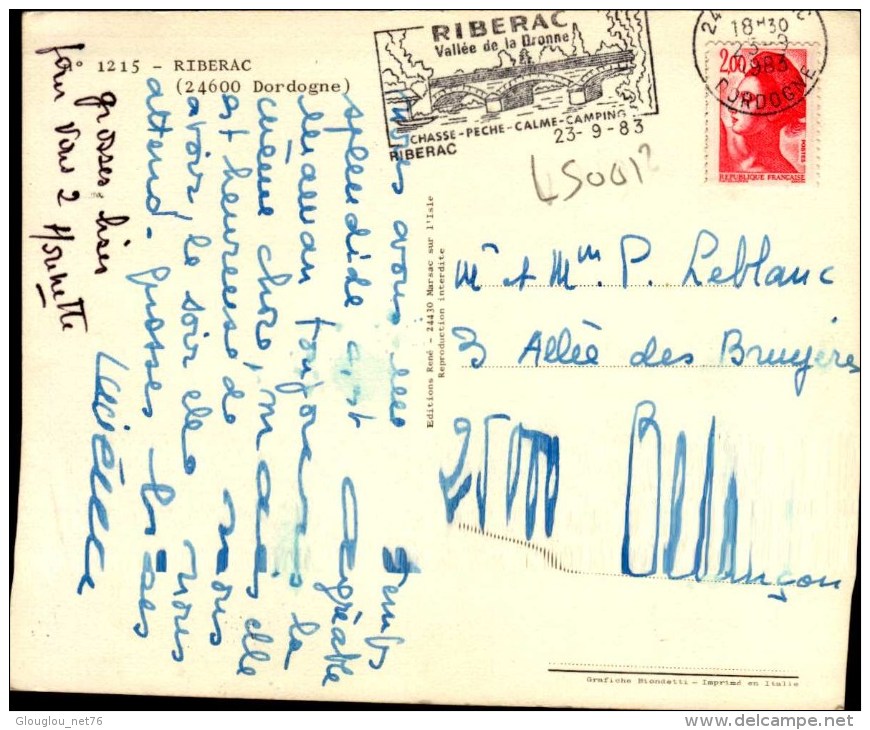 1215 - RIBERAC
(24600 Dordogne)
RIBERAC
Vallée de la Dronne
CHASSE-PECHE-CALME-CAMPING
RIBERAC
23-9-83
18H30
23-9
1983
DORDOGNE
2,00
POSTES
REPUBLIQUE FRANÇAISE
LS0012
nous avons un temps
splendide c'est agréable
maman toujours la
même chose, mais elle
est heureuse de nous
avoir le soir elle nous
attend. grosses bises
Lucienne
grosses bises
pour vous 2
Editions René - 24430 Marsac sur l'Isle
Reproduction interdite
Mr et Mme P. Leblanc
3 Allée des Bruyères
25000 Besançon
Grafiche Biondetti - Imprimé en Italie
Glouglou_net76
www.delcampe.net